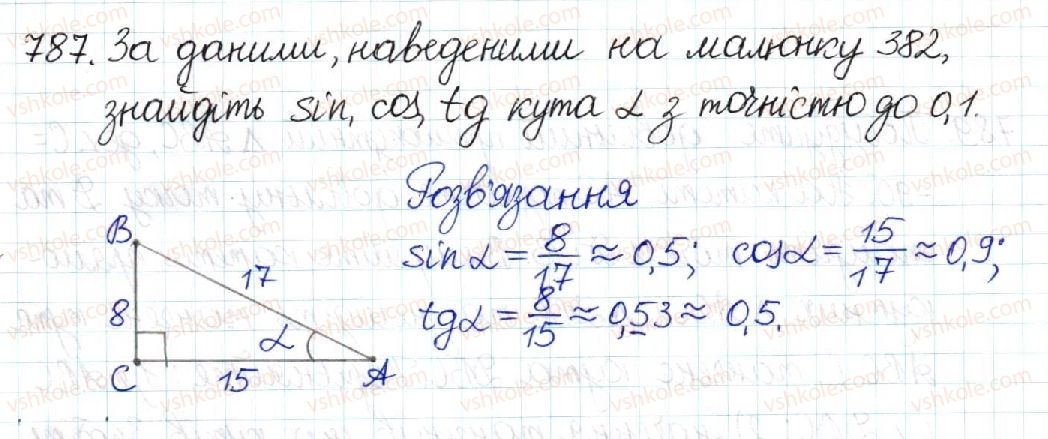 787. За даними, наведеними на малюнку 382,
знайдіть sin, cos, tg кута α з точністю до 0,1.
Розв'язання
sin α = 8/17 ≈ 0,5; cos α = 15/17 ≈ 0,9;
tg α = 8/15 ≈ 0,53 ≈ 0,5.
B
17
8
α
C
15
A
vshkole.com